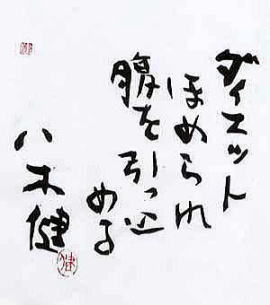 ダイエット
ほめられ
腹を引っ込
める
八木健
健